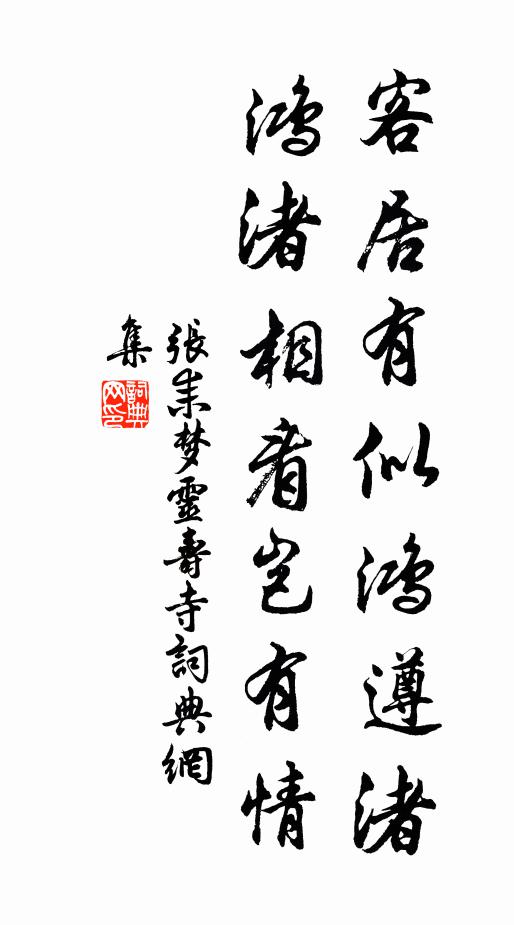 客居有似鴻遵渚
鴻渚相看豈有情
張耒梦靈壽寺詞典網
集
詞典
网印